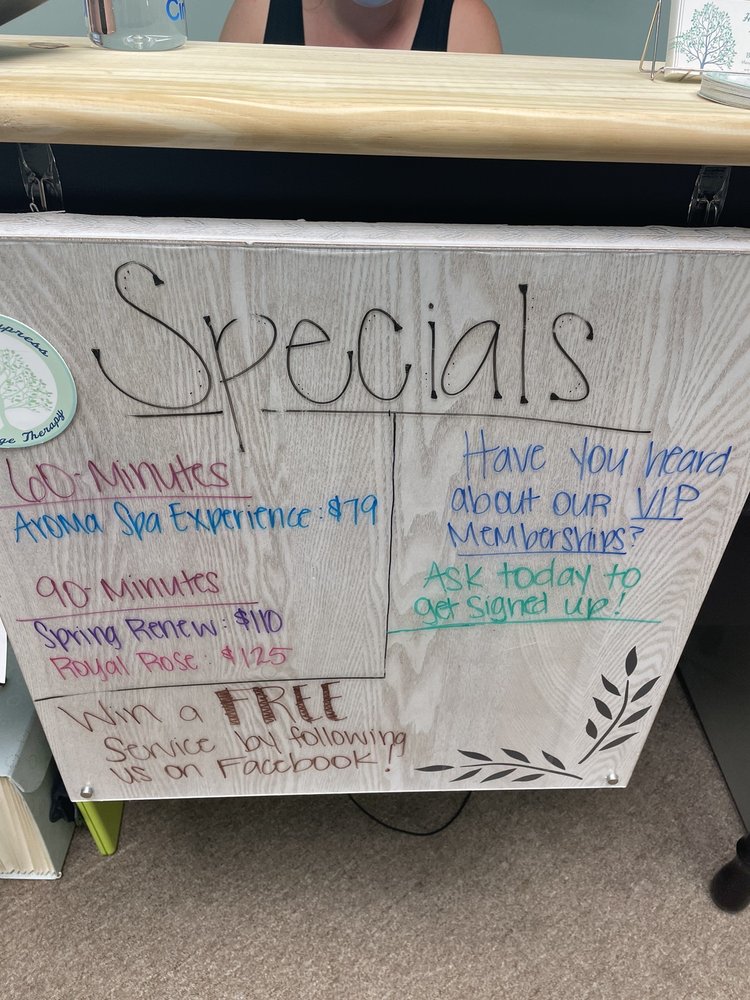 Specials
60-Minutes
Aroma Spa Experience: $79
90-Minutes
Spring Renew: $110
Royal Rose: $125
Have you heard
about our VIP
Memberships?
Ask today to
get signed up!
Win a FREE
Service by following
us on Facebook!
Therapy